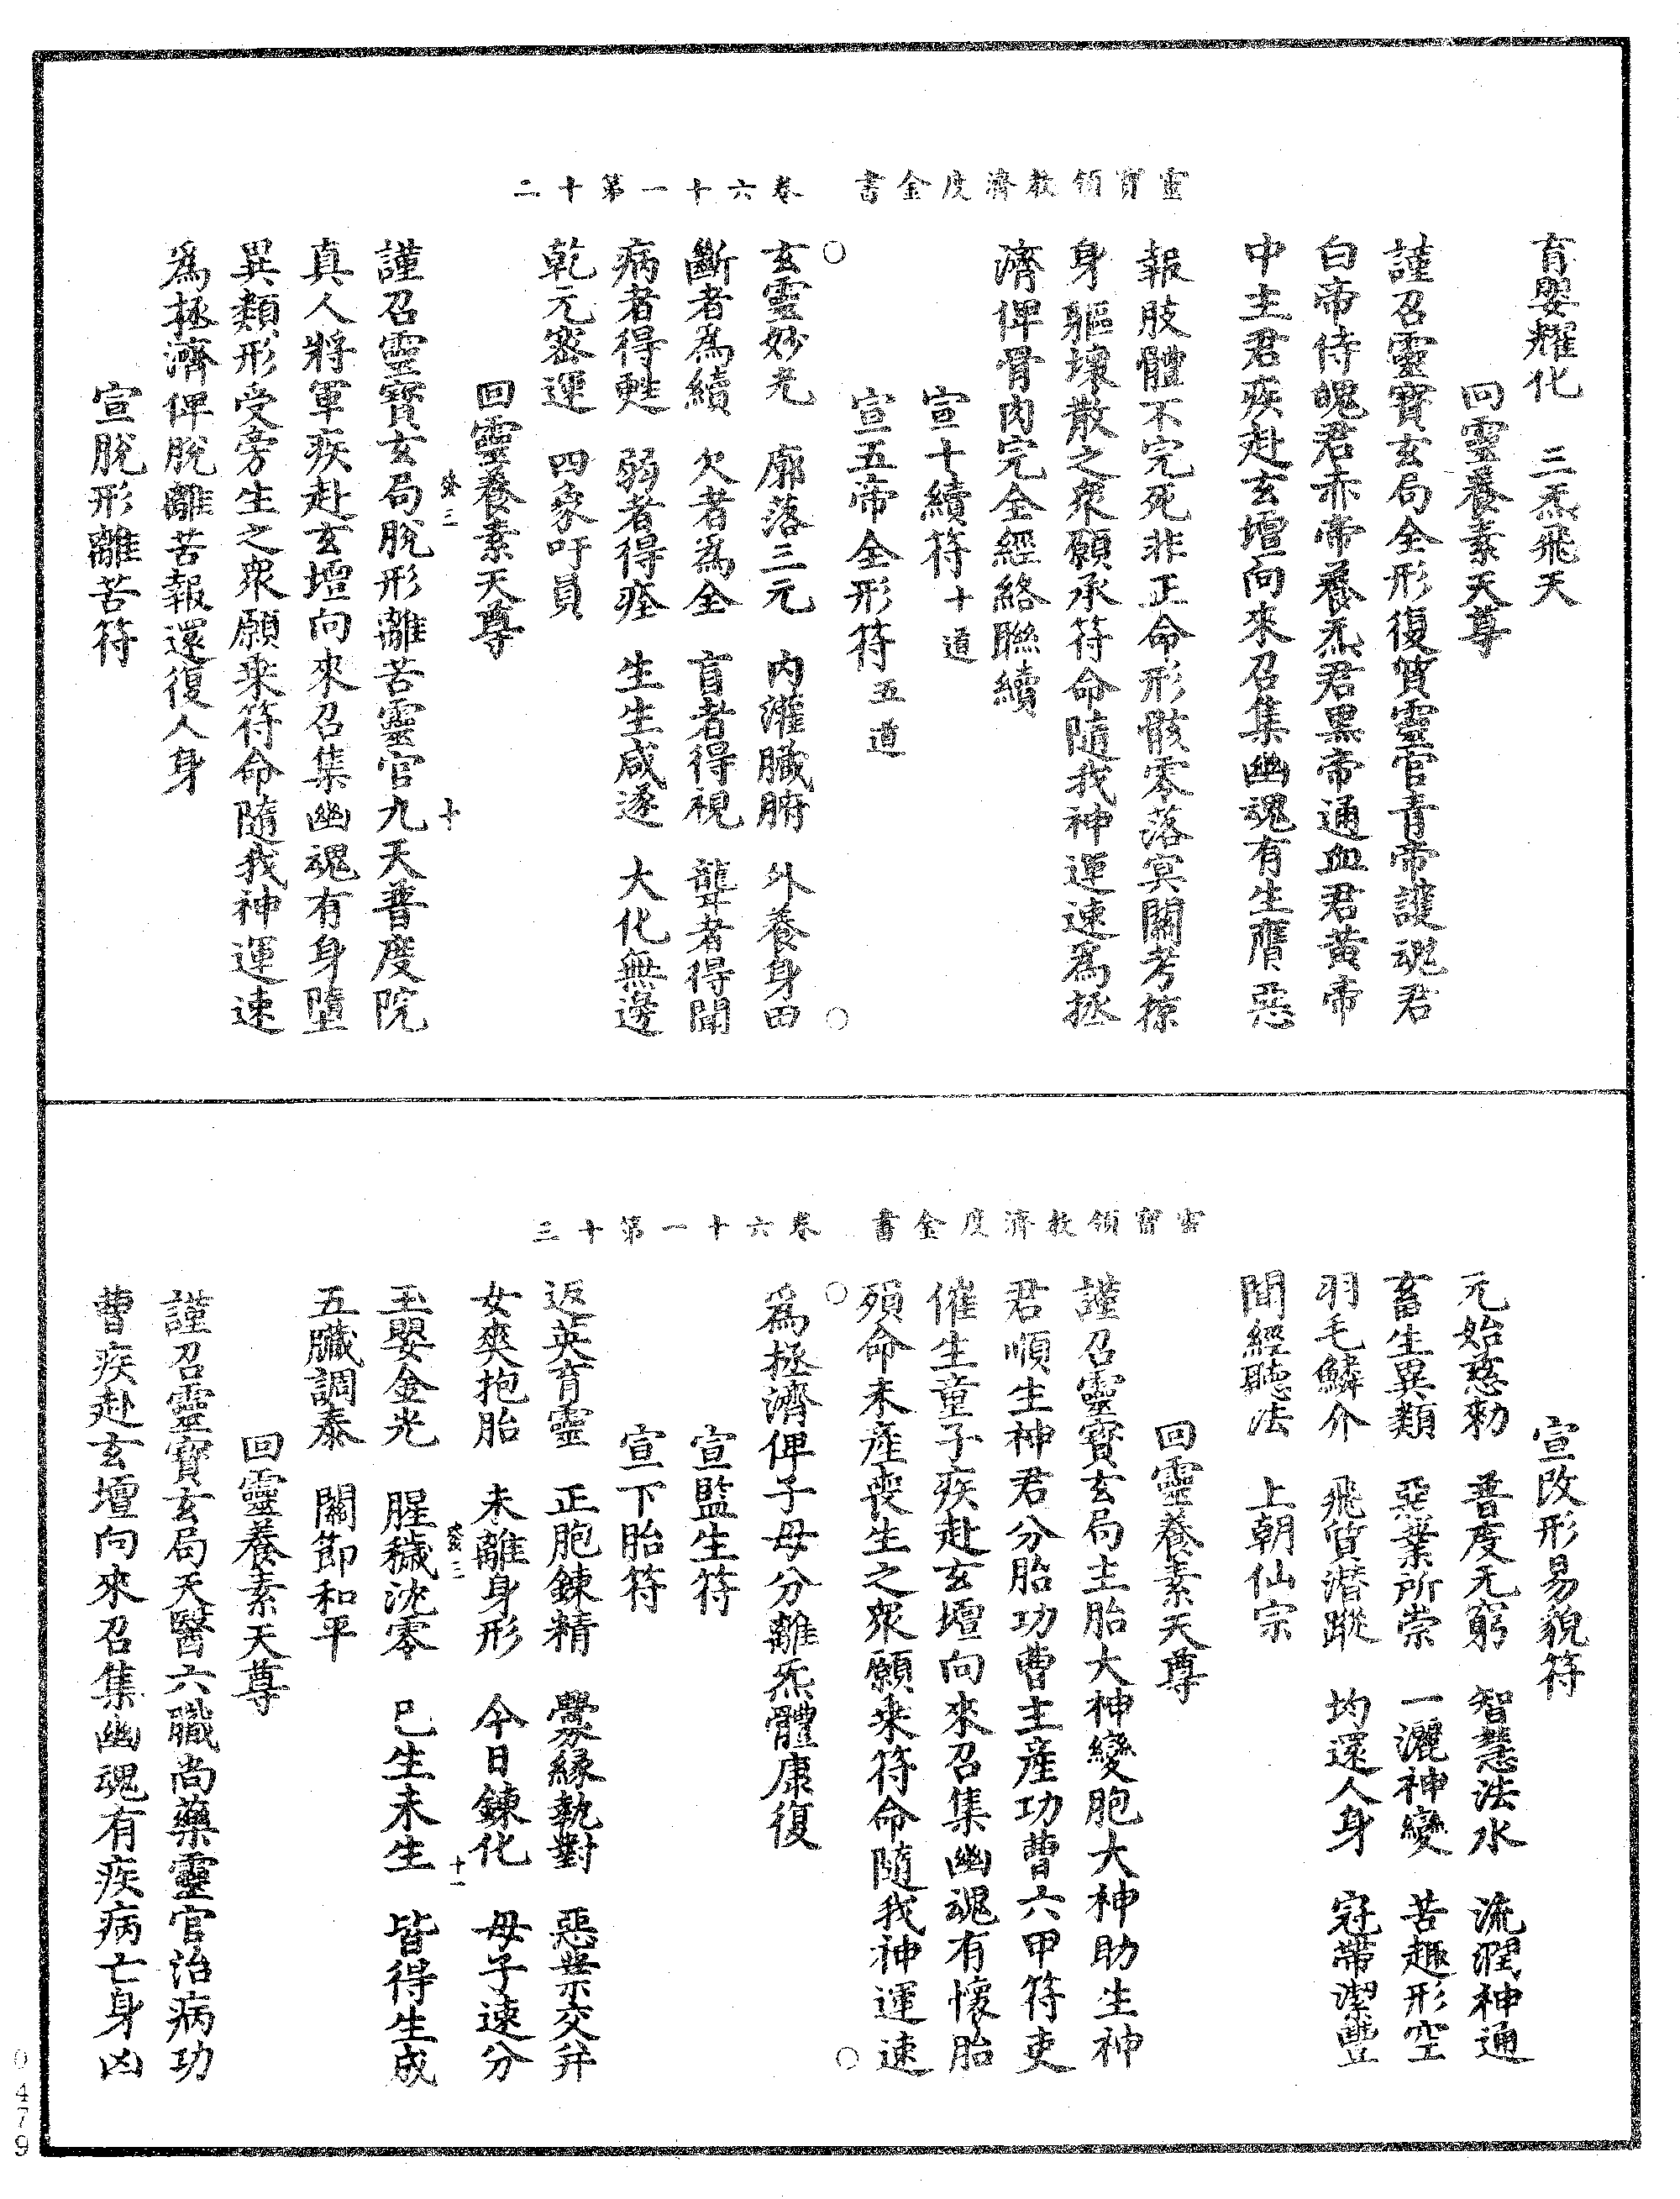 靈寶領教濟度金書　卷六十一第十二
育嬰耀化　三炁飛天
回靈養素天尊
謹召靈寶玄局全形復質靈官青帝護魂君
白帝侍魄君赤帝養炁君黑帝通血君黃帝
中主君疾赴玄壇向來召集幽魂有生膺惡
報肢體不完死非正命形骸零落冥關考掠
身軀壞散之衆願承符命隨我神運速為拯
濟俾骨肉完全經絡聯續
宣十續符十道
宣五帝全形符五道
玄靈妙光　廓落三元　内灌臟腑　外養身田
斷者為續　欠者為全　盲者得視　聾者得聞
病者得甦　弱者得痊　生生咸遂　大化無邊
乾元密運　四象吁員
回靈養素天尊
謹召靈寶玄局脫形離苦靈官九天普度院
真人將軍疾赴玄壇向來召集幽魂有身墮
異類形受旁生之衆願来符命隨我神運速
為拯濟俾脫離苦報還復人身
宣脫形離苦符
靈寶領教濟度金書　卷六十一第十三
宣改形易貌符
元始慈勑　普度无窮　智慧法水　流潤神通
畜生異類　惡業所崇　一灑神變　苦趣形空
羽毛鱗介　飛貲潜蹤　均還人身　冠帶潔豐
聞經聽法　上朝仙宗
回靈養素天尊
謹召靈寶玄局主胎大神變胞大神助生神
君順生神君分胎功曹主産功曹六甲符吏
催生童子疾赴玄壇向來召集幽魂有懷胎
殞命未産喪生之衆願来符命隨我神運速
為拯濟俾子母分離炁體康復
宣監生符
宣下胎符
返英育靈　正胞鍊精　釁緣執對　惡業交并
女爽抱胎　未離身形　今日鍊化　母子速分
玉嬰金光　腥穢沈零　巳生未生　皆得生成
五臟調泰　關節和平
回靈養素天尊
謹召靈寶玄局天醫六職尚藥靈官治病功
曹疾赴玄壇向來召集幽魂有疾病亡身凶
0479